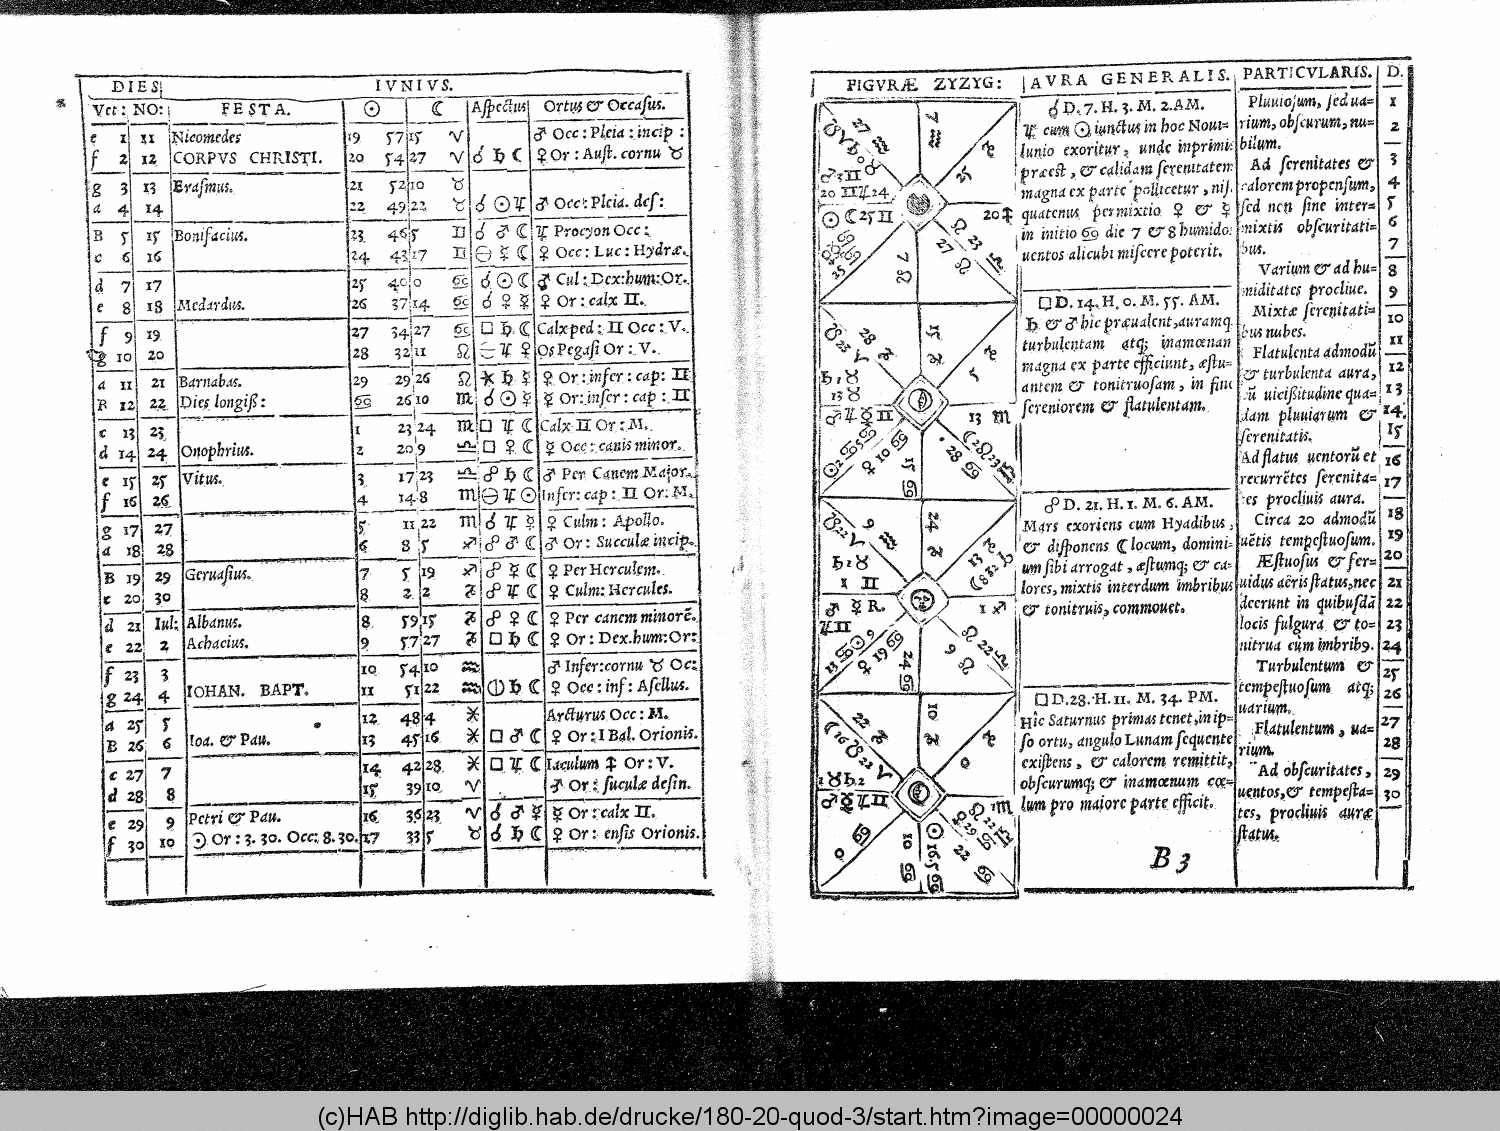 DIES IVNIVS.
Vet: NO: FESTA. ☉ ☾ Aſpectus Ortus & Occaſus.
e 1 11 Nicomedes 19 57 15 ♈ ♂ Occ: Pleia: incip:
f 2 12 CORPVS CHRISTI. 20 54 27 ♈ ☌ ♄ ☾ ♀ Or: Auſt. cornu ♉
g 3 13 Eraſmus. 21 52 10 ♉
a 4 14 22 49 22 ♉ ☌ ☉ ♃ ♂ Occ: Pleia. deſ:
B 5 15 Bonifacius. 23 46 5 ♊ ☌ ♂ ☾ ♃ Procyon Occ:
c 6 16 24 43 17 ♊ ☿ ☾ ♀ Occ: Luc: Hydræ.
d 7 17 25 40 0 ♋ ☌ ☉ ☾ ♂ Cul: Dex: hum: Or.
e 8 18 Medardus. 26 37 14 ♋ ☌ ♀ ☿ ♀ Or: calx ♊.
f 9 19 27 34 27 ♋ □ ♄ ☾ Calx ped: ♊ Occ: V.
g 10 20 28 32 11 ♌ ♃ ♀ Os Pegaſi Or: V.
a 11 21 Barnabas. 29 29 26 ♌ ⚹ ♄ ☿ ♀ Or: infer: cap: ♊
B 12 22 Dies longiß: ♋ 26 10 ♍ ☌ ☉ ☿ ☿ Or: infer: cap: ♊
c 13 23 1 23 24 ♍ □ ♃ ☾ Calx ♊ Or: M.
d 14 24 Onophrius. 2 20 9 ♎ □ ♀ ☾ ☿ Occ: canis minor.
e 15 25 Vitus. 3 17 23 ♎ ☍ ♄ ☾ ♂ Per Canem Major.
f 16 26 4 14 8 ♏ ♃ ☉ Infer: cap: ♊ Or: M.
g 17 27 5 11 22 ♏ ☌ ♃ ☿ ♀ Culm: Apollo.
a 18 28 6 8 5 ♐ ☍ ♂ ☾ ♂ Or: Succulæ incip.
B 19 29 Geruaſius. 7 5 19 ♐ ☍ ☿ ☾ ♀ Per Herculem.
c 20 30 8 2 2 ♑ ☍ ♃ ☾ ♀ Culm: Hercules.
d 21 Iul: Albanus. 8 59 15 ♑ ☍ ♀ ☾ ♀ Per canem minorē.
e 22 2 Achacius. 9 57 27 ♑ □ ♄ ☾ ♀ Or: Dex. hum: Or:
f 23 3 10 54 10 ♒ ♂ Infer: cornu ♉ Oc:
g 24 4 IOHAN. BAPT. 11 51 22 ♒ ♄ ☾ ♀ Occ: inf: Aſellus.
a 25 5 12 48 4 ♓ Arcturus Occ: M.
B 26 6 Ioa. & Pau. 13 45 16 ♓ □ ♂ ☾ ♀ Or: I Bal. Orionis.
c 27 7 14 42 28 ♓ □ ♃ ☾ Iaculum ♐ Or: V.
d 28 8 15 39 10 ♈ ♂ Or: ſuculæ deſin.
e 29 9 Petri & Pau. 16 36 23 ♈ ☌ ♂ ☿ ☿ Or: calx ♊.
f 30 10 ☉ Or: 3. 30. Occ: 8. 30. 17 33 5 ♉ ☌ ♄ ☾ ♀ Or: enſis Orionis.
FIGVRÆ ZYZYG:
AVRA GENERALIS.
☌ D. 7. H. 3. M. 2. AM.
♃ cum ☉ iunctus in hoc Noui=
lunio exoritur, unde inprimis
præeſt, & calidam ſerenitatem
magna ex parte pollicetur, niſi
quatenus permixtio ♀ & ☿
in initio ♋ die 7 & 8 humido:
uentos alicubi miſcere poterit.
□ D. 14. H. 0. M. 55. AM.
♄ & ♂ hic præualent, auramq;
turbulentam atq; inamœnam
magna ex parte efficiunt, æſtu=
antem & tonitruoſam, in fine
ſereniorem & flatulentam.
☍ D. 21. H. 1. M. 6. AM.
Mars exoriens cum Hyadibus,
& diſponens ☾ locum, domini=
um ſibi arrogat, æſtumq; & ca=
lores, mixtis interdum imbribus
& tonitruis, commouet.
□ D. 28. H. 11. M. 34. PM.
Hîc Saturnus primas tenet, in ip=
ſo ortu, angulo Lunam ſequente
exiſtens, & calorem remittit,
obſcurumq; & inamœnum cœ=
lum pro maiore parte efficit.
B 3
PARTICVLARIS. D.
Pluuioſum, ſed ua=
rium, obſcurum, nu=
bilum.
Ad ſerenitates &
calorem propenſum,
ſed non ſine inter=
mixtis obſcuritati=
bus.
Varium & ad hu=
miditates procliue.
Mixtæ ſerenitati=
bus nubes.
Flatulenta admodū
& turbulenta aura,
cū uicißitudine qua=
dam pluuiarum &
ſerenitatis.
Ad flatus uentorū et
recurrētes ſerenita=
tes procliuis aura.
Circa 20 admodū
uētis tempeſtuoſum.
Æſtuoſus & fer=
uidus aëris ſtatus, nec
deerunt in quibuſdā
locis fulgura & to=
nitrua cum imbrib9.
Turbulentum &
tempeſtuoſum atq;
uarium.
Flatulentum, ua=
rium.
Ad obſcuritates,
uentos, & tempeſta=
tes, procliuis auræ
ſtatus.
1
2
3
4
5
6
7
8
9
10
11
12
13
14.
15
16
17
18
19
20
21
22
23
24
25
26
27
28
29
30
(c)HAB http://diglib.hab.de/drucke/180-20-quod-3/start.htm?image=00000024